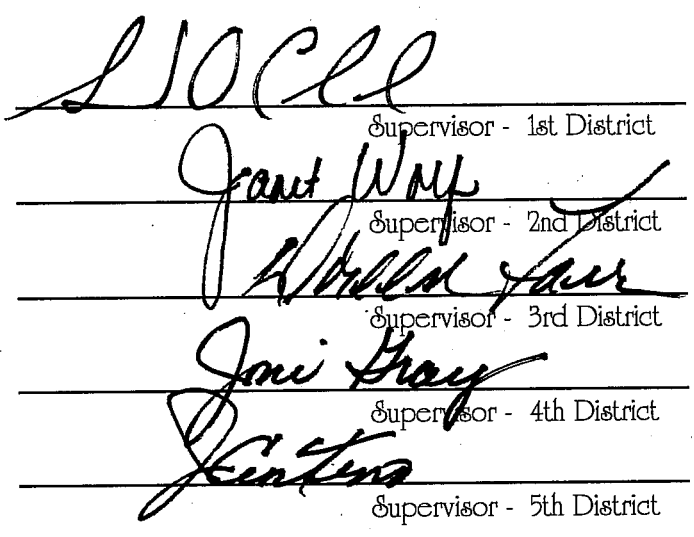 Supervisor - 1st District
Janet Wolf
Supervisor - 2nd District
Doreen Farr
Supervisor - 3rd District
Joni Gray
Supervisor - 4th District
J Centeno
Supervisor - 5th District